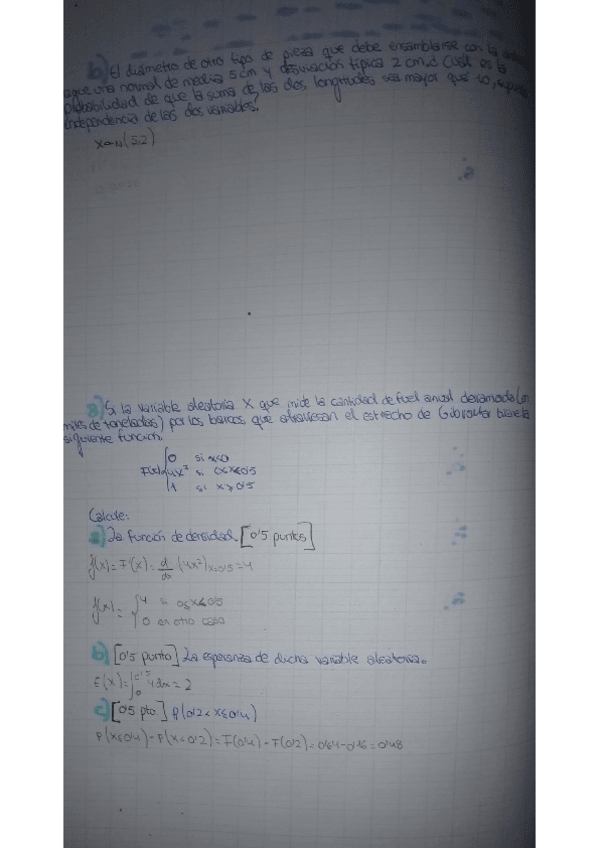 b) El diámetro de otro tipo de pieza que debe ensamblarse con la
sigue una normal de media 5cm y desviación típica 2 cm. ¿Cuál es la
probabilidad de que la suma de las dos longitudes sea mayor que 10,
independencia de las dos variables?
X~N(5,2)
3) Si la variable aleatoria X que mide la cantidad de fuel anual derramada (en
miles de toneladas) por los barcos que atraviesan el estrecho de Gibraltar tiene la
siguiente función.
0 si x<0
F(x) 4x² si 0≤x≤0'5
1 si x>0'5
Calcule:
a) La función de densidad. [0'5 puntos]
f(x) = F'(x) = d/dx (4x²) x=0'5 = 4
f(x) = 4 si 0≤x≤0'5
0 en otro caso
b) [0'5 punto] La esperanza de dicha variable aleatoria.
E(x) = ∫₀^0'5 4dx = 2
c) [0'5 pto.] P(0'2<x≤0'4)
P(x≤0'4) - P(x<0'2) = F(0'4) - F(0'2) = 0'64 - 0'16 = 0'48